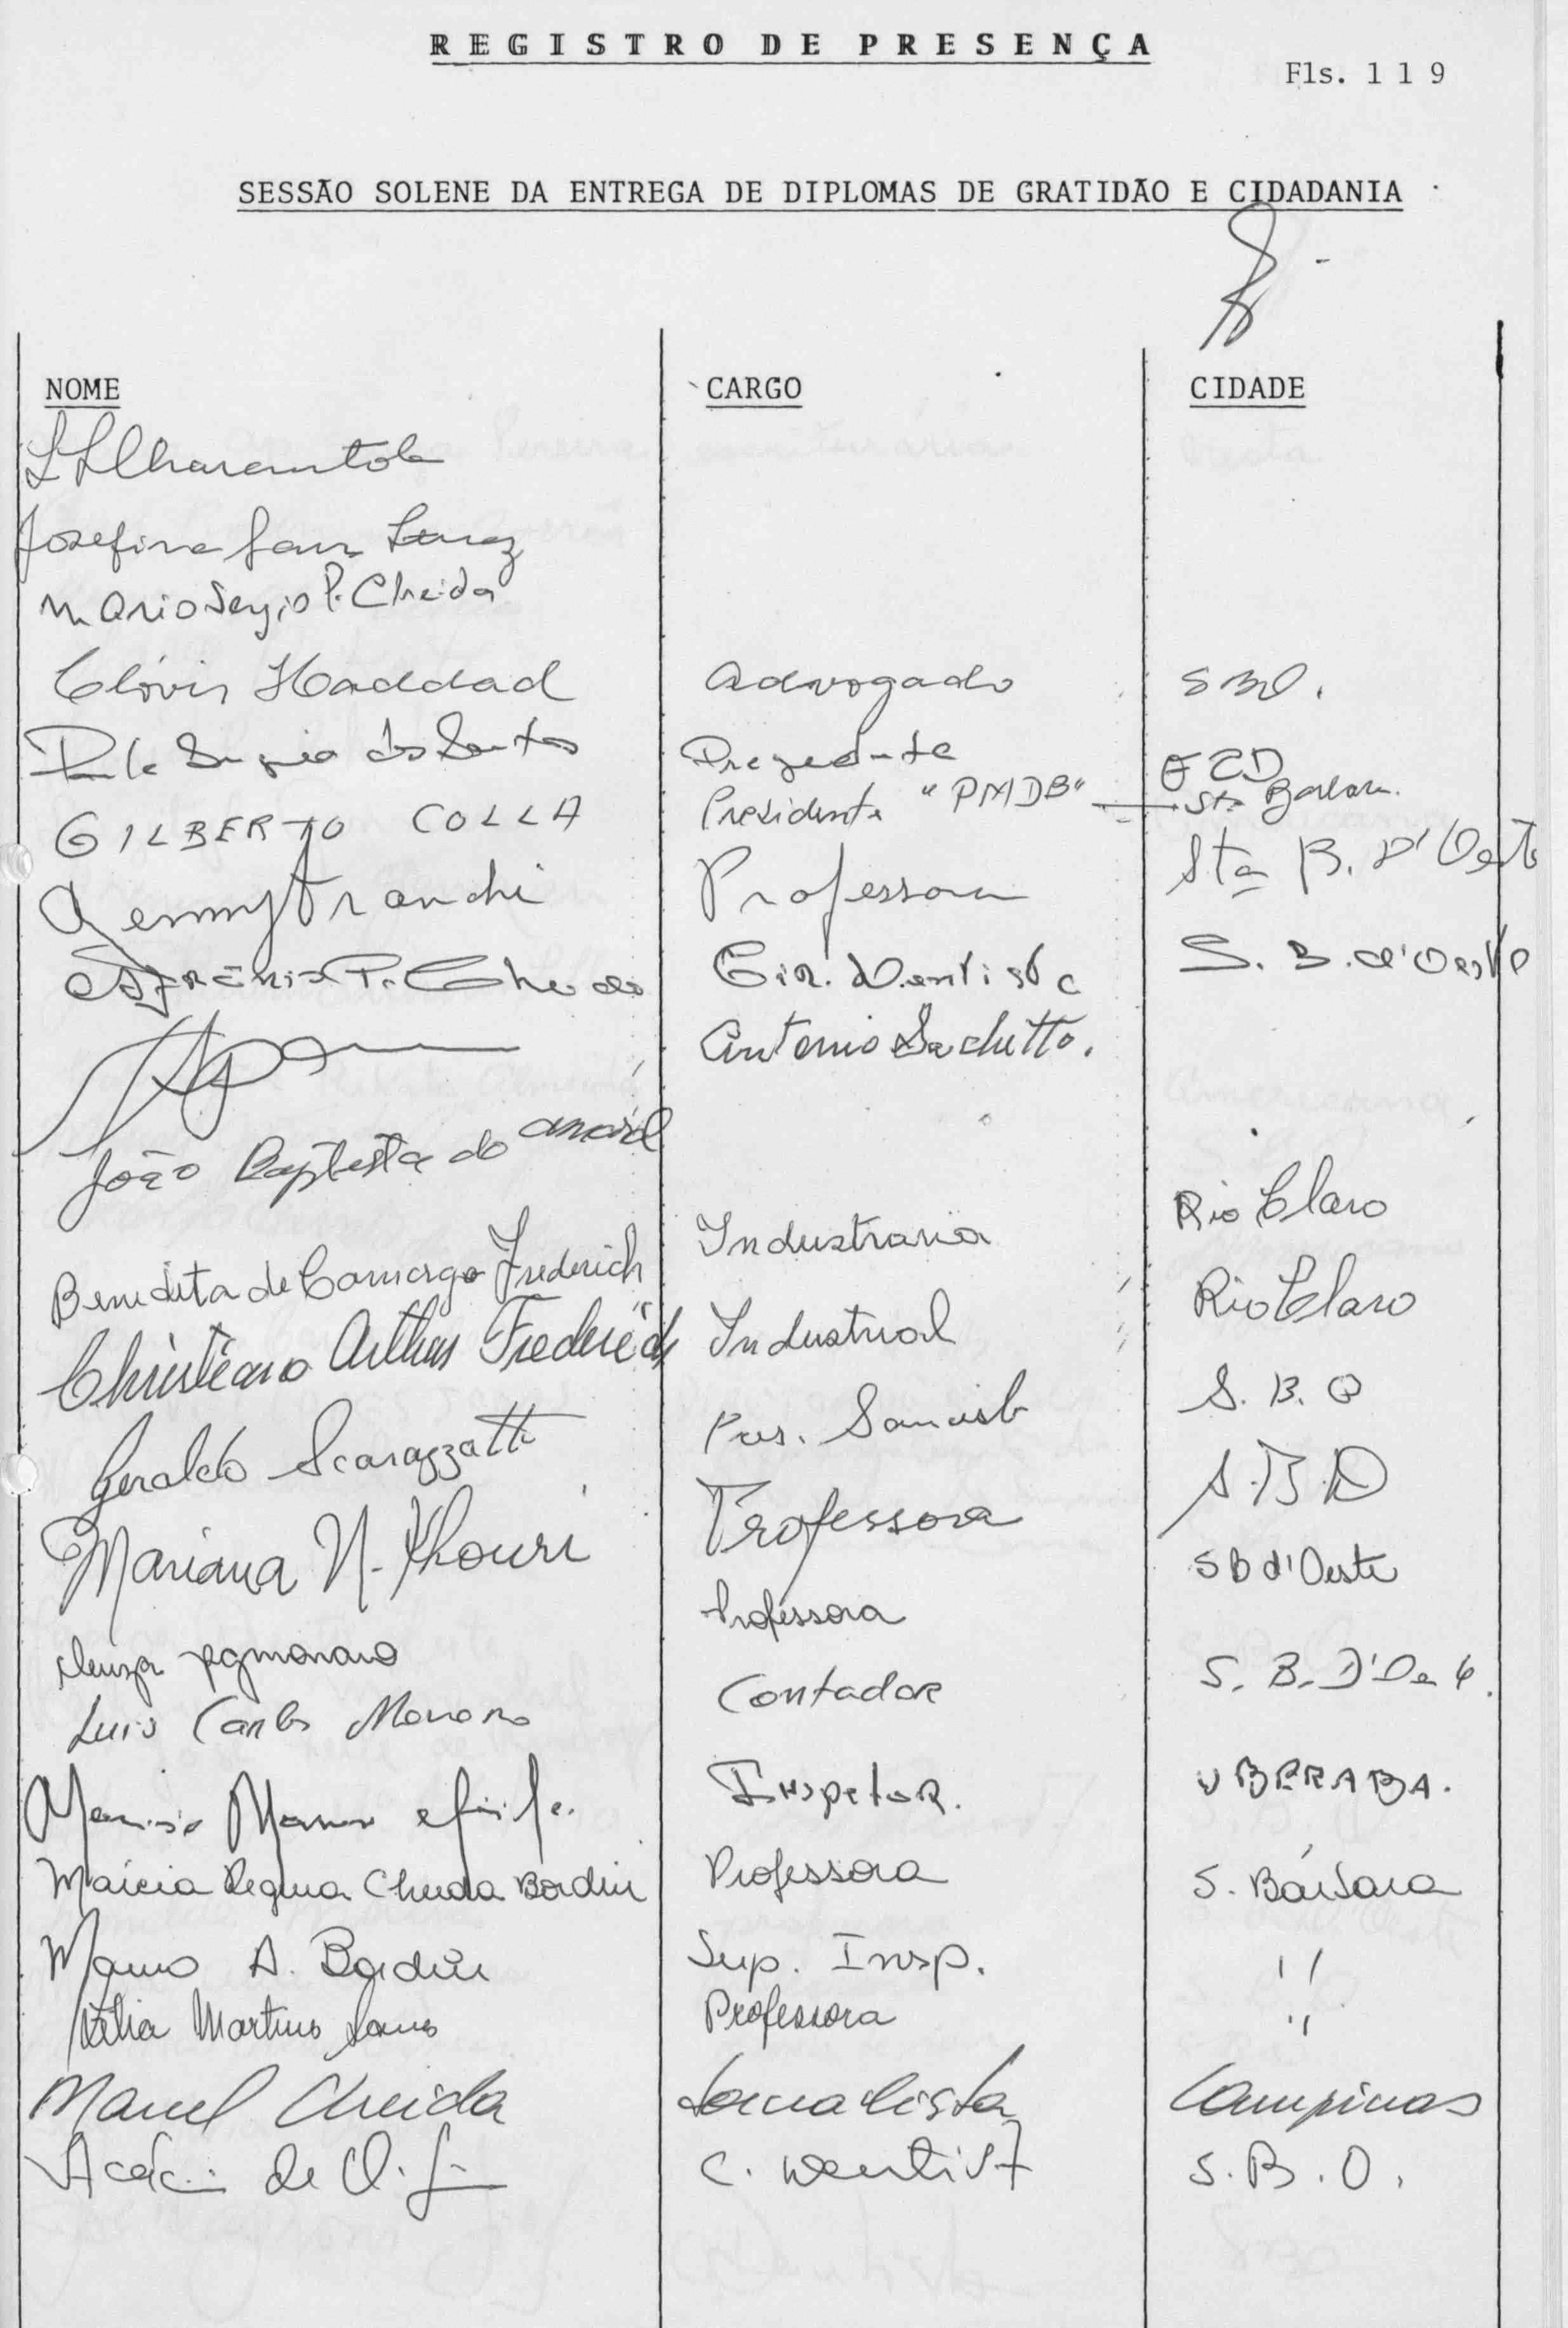 REGISTRO DE PRESENÇA
Fls. 119
SESSÃO SOLENE DA ENTREGA DE DIPLOMAS DE GRATIDÃO E CIDADANIA
NOME CARGO CIDADE
Josefina
Mario Sergio P. Cheida
Clóvis Haddad Advogado SBO.
dos Santos
GILBERTO COLLA Presidente "PMDB" Sta Barbara
Franchi Professora Sta B. D'Oeste
P. Cheida Cir. Dentista S. B. d'Oeste
Antonio Sachetto.
João Baptista do Amaral
Benedita de Camargo Frederich Industraria Rio Claro
Christiano Arthur Frederich Industrial Rio Claro
Geraldo Scarazzatti Pres. S. B. O
Mariana N. Khouri Professora S.B.O
Professora SB d'Oeste
Luis Carlos Contador S. B. D'Oeste
Inspetor. UBERABA.
Marcia Regina Cheida Bordin Professora S. Bárbara
Mauro A. Bordin Sup. Insp. "
Martins Professora "
Manuel Cheida Jornalista Campinas
de O. C. Dentista S.B.O.